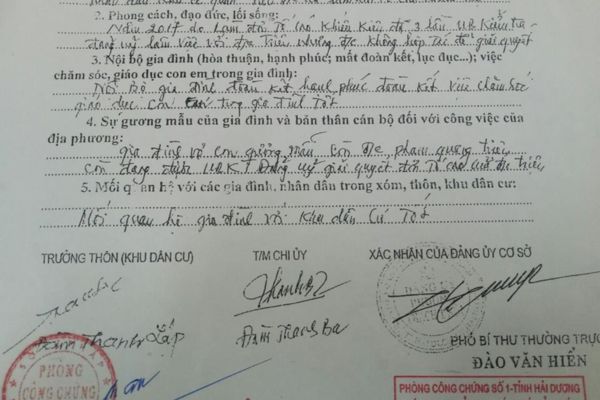 2. Phong cách, đạo đức, lối sống:
Năm 2017 do làm đơn Tố cáo Khiếu Kiện đã 3 lần UB Kiểm tra
đảng uỷ làm việc với đ/c triều nhưng đ/c không hợp tác để giải quyết
3. Nội bộ gia đình (hòa thuận, hạnh phúc; mất đoàn kết, lục đục...); việc
chăm sóc, giáo dục con em trong gia đình:
Nội Bộ gia đình đoàn kết hạnh phúc đoàn kết việc chăm sóc
giáo dục con trong gia đình Tốt
4. Sự gương mẫu của gia đình và bản thân cán bộ đối với công việc của
địa phương:
gia đình vợ con gương mẫu Còn đ/c phạm quang triều
còn đang UBKT Đảng uỷ giải quyết đơn Tố cáo của đ/c triều
5. Mối quan hệ với các gia đình, nhân dân trong xóm, thôn, khu dân cư:
Mối quan hệ gia đình với Khu dân Cư Tốt
TRƯỞNG THÔN (KHU DÂN CƯ)
T/M CHI ỦY
XÁC NHẬN CỦA ĐẢNG ỦY CƠ SỞ
Đàm Thanh Lấp
Đàm Thanh Ba
PHÓ BÍ THƯ THƯỜNG TRỰC
ĐÀO VĂN HIỂN
PHÒNG
CÔNG CHỨNG
PHÒNG CÔNG CHỨNG SỐ 1-TỈNH HẢI DƯƠNG